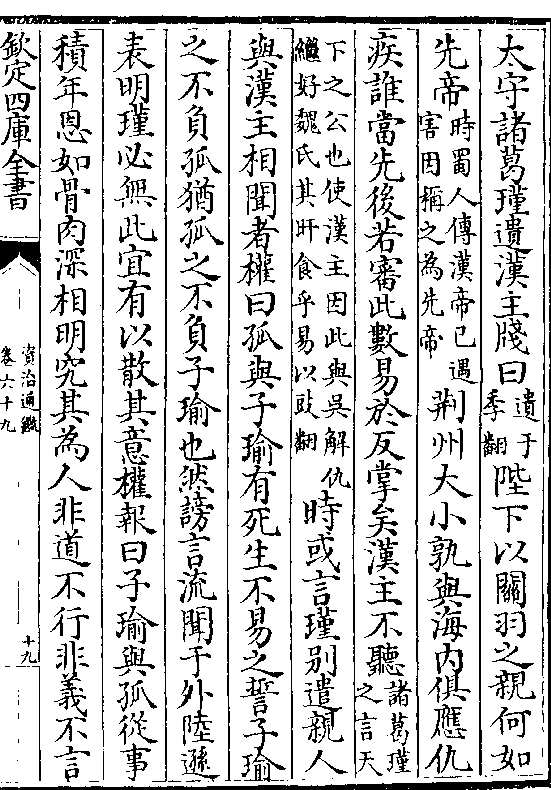 太守諸葛瑾遺漢主牋曰遺于季翻陛下以關羽之親何如
先帝時蜀人傳漢帝已遇害因稱之為先帝荆州大小孰與海内俱應仇
疾誰當先後若審此數易於反掌矣漢主不聽諸葛瑾之言天
下之公也使漢主因此與吳解仇繼好魏氏其旰食乎易以豉翻時或言瑾别遣親人
與漢主相聞者權曰孤與子瑜有死生不易之誓子瑜
之不負孤猶孤之不負子瑜也然謗言流聞于外陸遜
表明瑾必無此宜有以散其意權報曰子瑜與孤從事
積年恩如骨肉深相明究其為人非道不行非義不言
欽定四庫全書
資治通鑑
卷六十九
十九